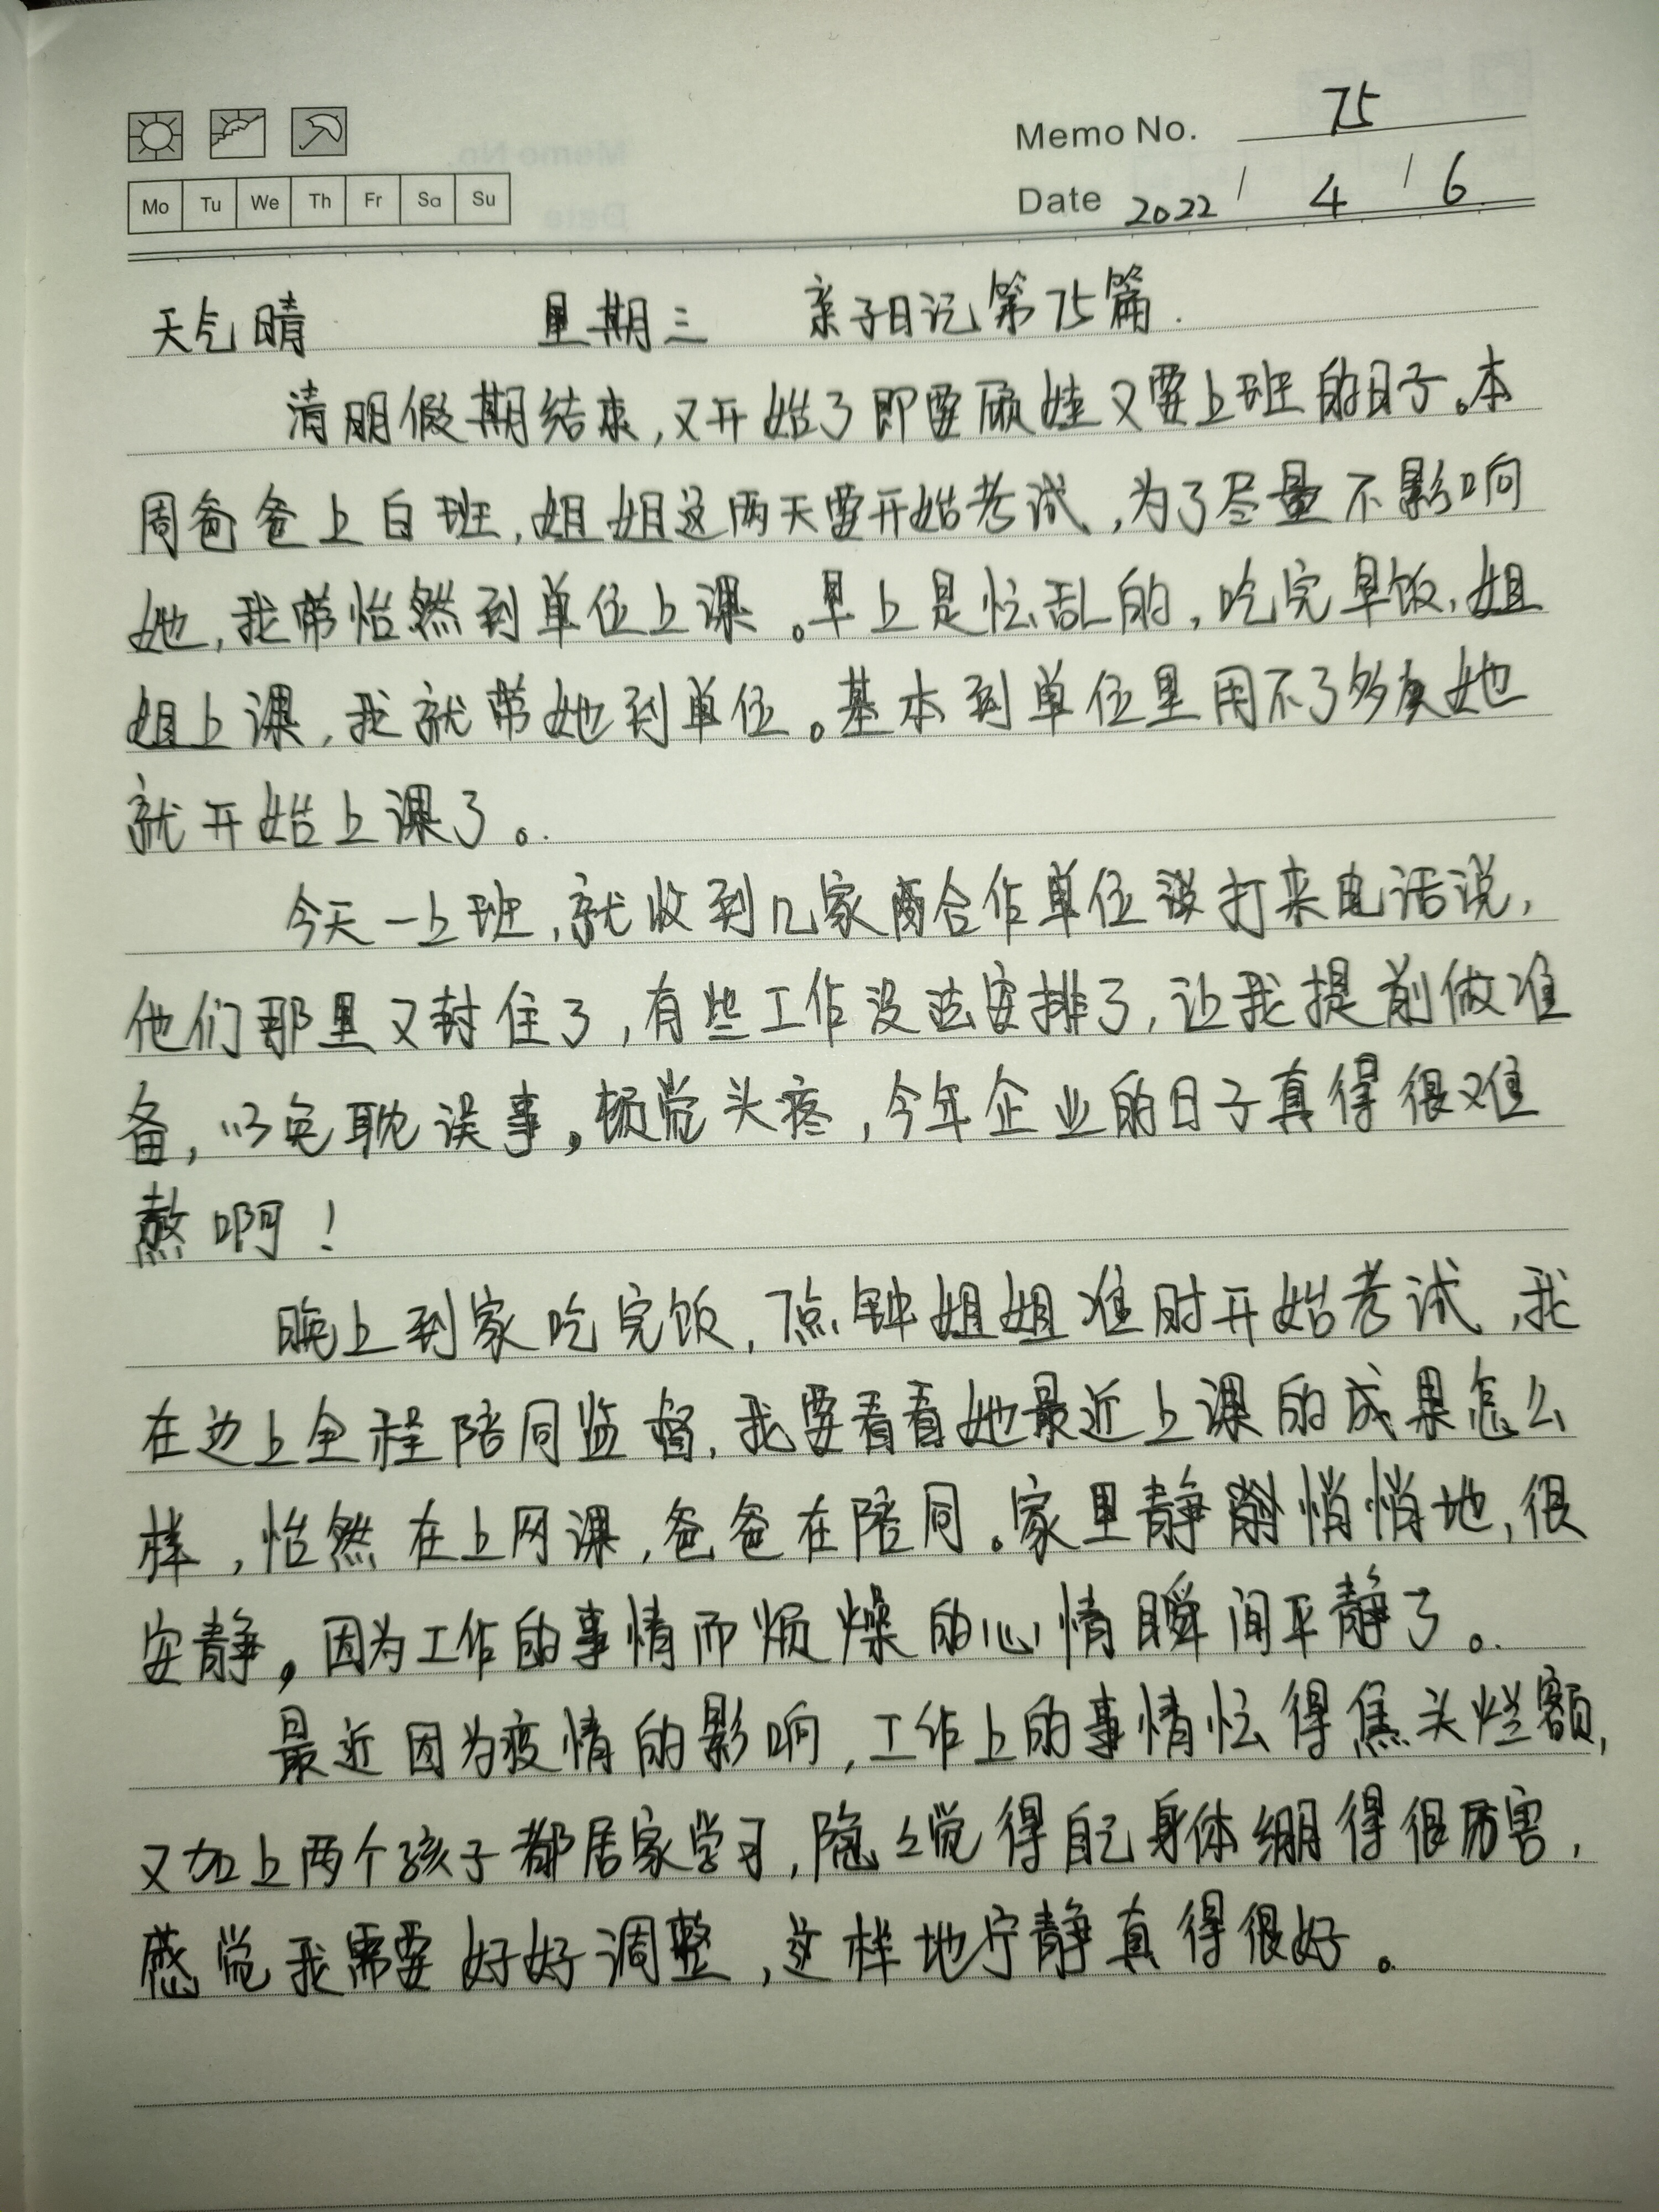 Memo No. 75
Mo Tu We Th Fr Sa Su
Date 2022 / 4 / 6
天气晴 星期三 亲子日记第75篇.
清明假期结束,又开始了即要顾娃又要上班的日子。本
周爸爸上白班,姐姐这两天要开始考试,为了尽量不影响
她,我带怡然到单位上课。早上是忙乱的,吃完早饭,姐
姐上课,我就带她到单位。基本到单位里用不了多久她
就开始上课了。
今天一上班,就收到几家商合作单位打来电话说,
他们那里又封住了,有些工作没法安排了,让我提前做准
备,以免耽误事,顿觉头疼,今年企业的日子真得很难
熬啊!
晚上到家吃完饭,7点钟姐姐准时开始考试,我
在边上全程陪同监督,我要看看她最近上课的成果怎么
样,怡然在上网课,爸爸在陪同。家里静悄悄地,很
安静,因为工作的事情而烦燥的心情瞬间平静了。
最近因为疫情的影响,工作上的事情忙得焦头烂额,
又加上两个孩子都居家学习,隐隐觉得自己身体绷得很厉害,
感觉我需要好好调整,这样地宁静真得很好。